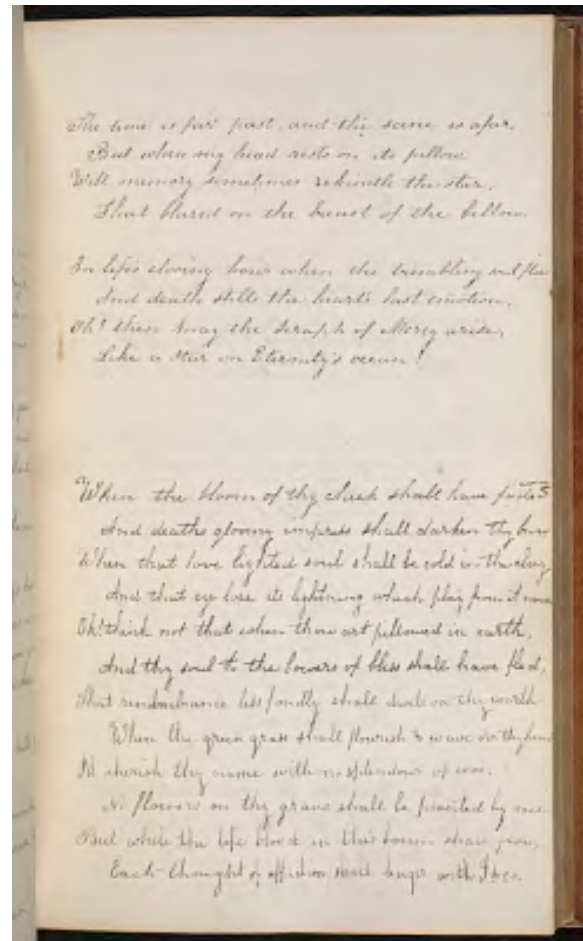 The time is far past, and the scene is afar,
But when my head rests on its pillow
Will memory sometimes rekindle the star,
That blazed on the breast of the billow.
In life's closing hour when the trembling soul flies
And death stills the hearts last emotion,
Oh! then may the Seraph of Mercy arise,
Like a star on Eternity's ocean!
When the bloom of thy cheek shall have
And deaths gloomy impress shall darken thy brow
When that love lighted soul shall be cold in the clay
And that eye lose its lightning which play from it now
Oh! think not that when thou art pillowed in earth,
And thy soul to the bowers of bliss shall have fled,
That remembrance less fondly shall dwell on thy worth
When the green grass shall flourish & wave oer thy head
I'd cherish thy name with no splendour of woe,
No flowers on thy grave shall be planted by me
But while the life blood in this bosom shall
Each thought of affection shall linger with Thee.